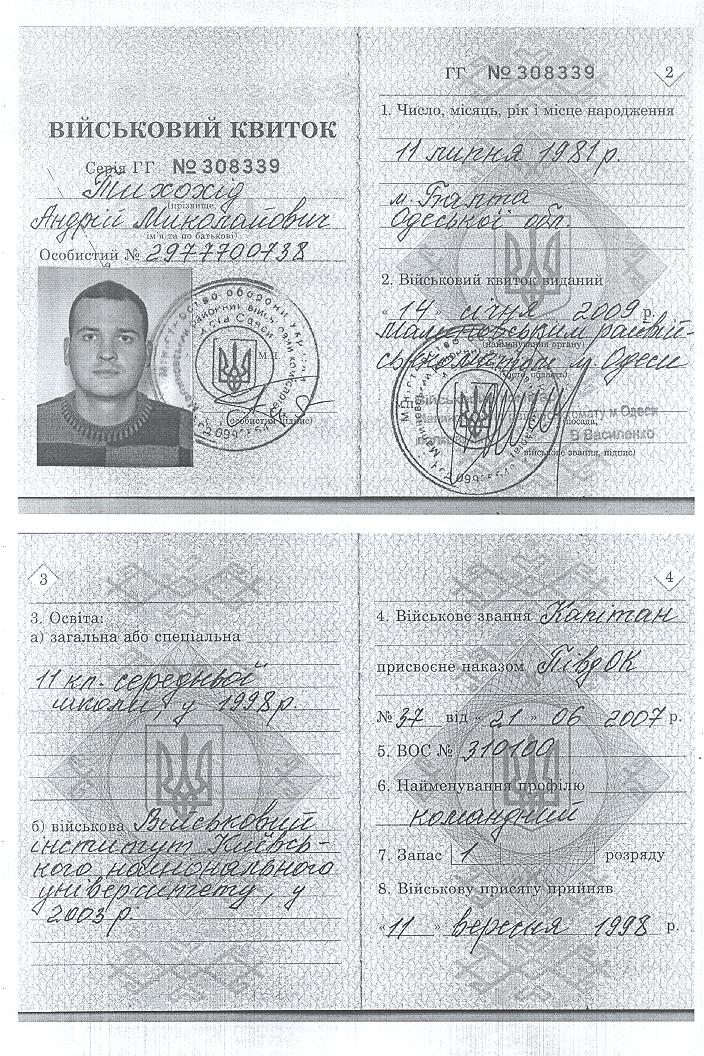 ВІЙСЬКОВИЙ КВИТОК
Серія ГГ № 308339
Тихохід
(прізвище)
Андрій Миколайович
ім'я та по батькові
Особистий № 2977700738
М П
(особистий підпис)
ГГ № 308339
2
1. Число, місяць, рік і місце народження
11 липня 1981 р.
м. Балта
Одеської обл.
2. Військовий квиток виданий
« 14 » січня 2009 р.
Малиновським райвій-
(найменування органу)
ськкоматом м. Одеси
місто, область)
комату м Одеси
посада,
В Василенко
військове звання, підпис)
3
3. Освіта:
а) загальна або спеціальна
11 кл. середньої
школи, у 1998 р.
б) військова Військовий
інститут Київсь-
кого національного
університету, у
2003 р.
4
4. Військове звання Капітан
присвоєне наказом ПівдОК
№ 37 від « 21 » 06 2007 р.
5. ВОС № 310100
6. Найменування профілю
командний
7. Запас 1 розряду
8. Військову присягу прийняв
« 11 » вересня 1998 р.